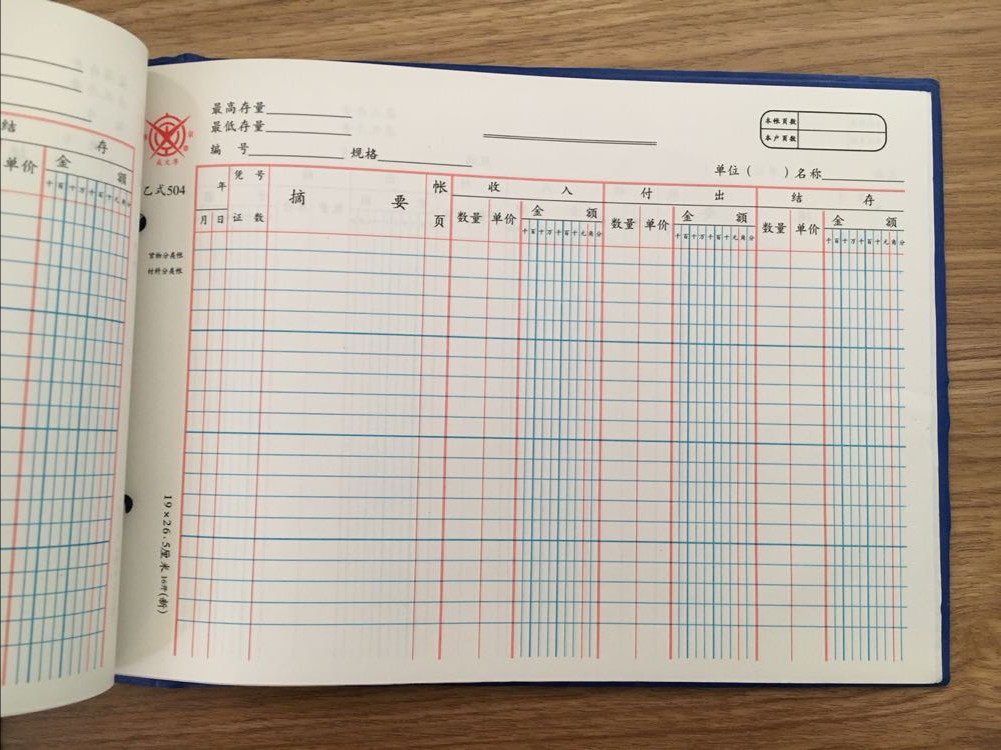 结 存
单价 金 额
千百十万千百十元角分
最高存量
最低存量
编 号 规格
本帐页数
本户页数
单位( )名称
成文厚
乙式504
货物分类帐
材料分类帐
19×26.5厘米 16开(新)
年 凭 号 摘 要 帐 收 入 付 出 结 存
月 日 证 数 页 数量 单价 金 额 数量 单价 金 额 数量 单价 金 额
千百十万千百十元角分 千百十万千百十元角分 千百十万千百十元角分